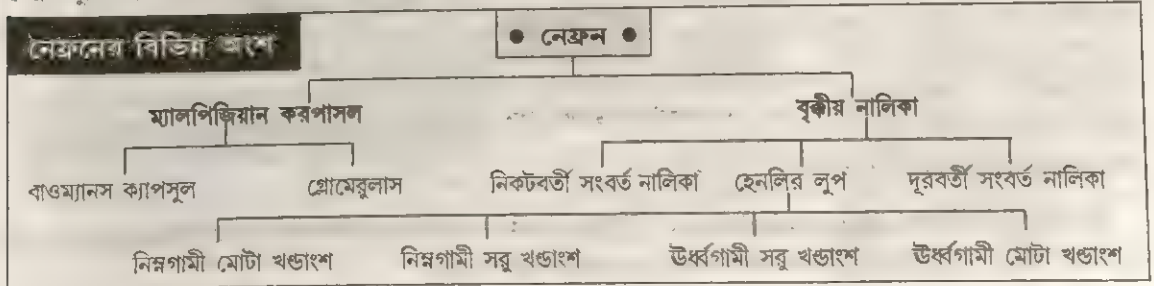 নেফ্রনের বিভিন্ন অংশ
● নেফ্রন ●
ম্যালপিজিয়ান করপাসল বৃক্কীয় নালিকা
বাওম্যানস ক্যাপসুল গ্লোমেরুলাস নিকটবর্তী সংবর্ত নালিকা হেনলির লুপ দূরবর্তী সংবর্ত নালিকা
নিম্নগামী মোটা খণ্ডাংশ নিম্নগামী সরু খণ্ডাংশ ঊর্ধ্বগামী সরু খণ্ডাংশ ঊর্ধ্বগামী মোটা খণ্ডাংশ